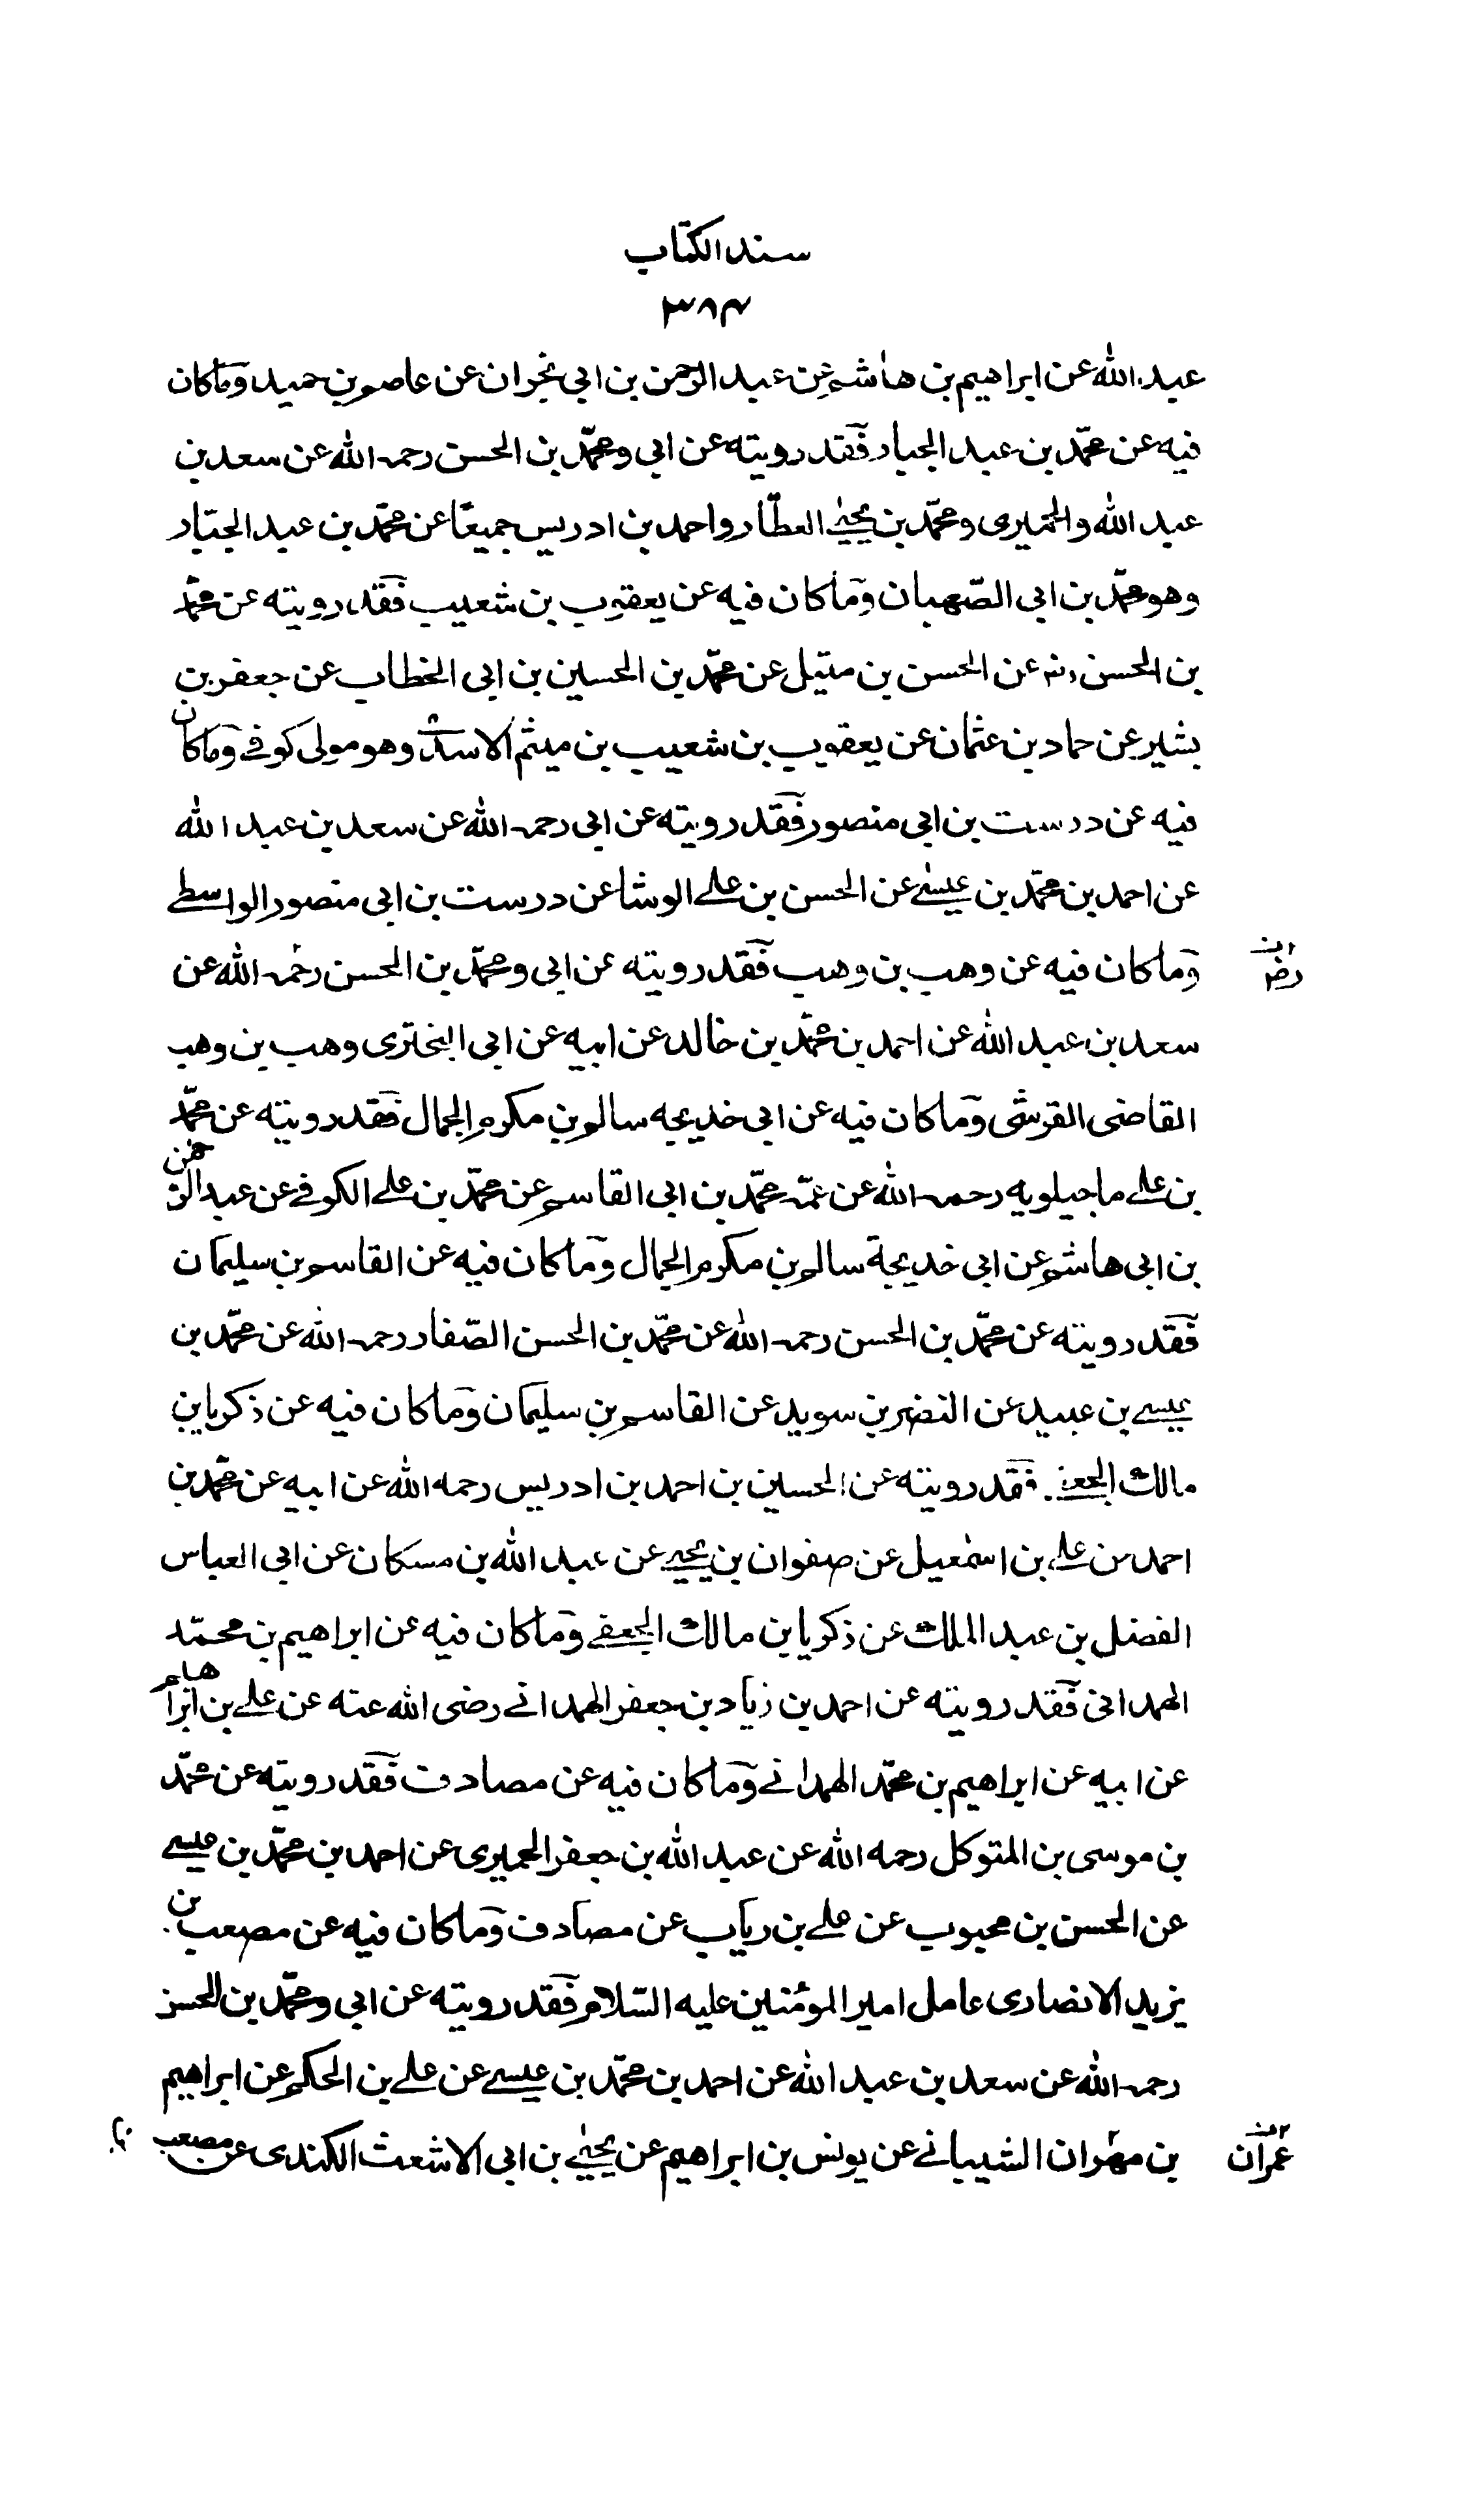 سند الكتاب
٣٨٤
عبد الله عن ابراهيم بن هاشم عن عبد الرحمن بن ابى نجران عن عاصم بن حميد وما كان
فيه عن محمّد بن عبد الجبار فقد رويته عن ابى ومحمّد بن الحسن رحمه الله عن سعد بن
عبد الله والحميرى ومحمّد بن يحيى العطّار واحمد بن ادريس جميعًا عن محمّد بن عبد الجبّار
وهو محمّد بن ابى الصّهبان وما كان فيه عن يعقوب بن شعيب فقد رويته عن محمّد
بن الحسن ره عن الحسن بن متيل عن محمّد بن الحسين بن ابى الخطاب عن جعفر بن
بشير عن حماد بن عثمان عن يعقوب بن شعيب بن ميثم الاسدى وهو مولى كوفى وما كان
فيه عن درست بن ابى منصور فقد رويته عن ابى رحمه الله عن سعد بن عبد الله
عن احمد بن محمّد بن عيسى عن الحسن بن على الوشا عن درست بن ابى منصور الواسطى
وما كان فيه عن وهب بن وهب فقد رويته عن ابى ومحمّد بن الحسن رحمه الله عن
سعد بن عبد الله عن احمد بن محمّد بن خالد عن ابيه عن ابى البخترى وهب بن وهب
القاضى القرشى وما كان فيه عن ابى خديجه سالم بن مكرم الجمال فقد رويته عن محمّد
بن على ماجيلويه رحمه الله عن عمّه محمّد بن ابى القاسم عن محمّد بن على الكوفى عن عبد الرحمن
بن ابى هاشم عن ابى خديجة سالم بن مكرم الجمال وما كان فيه عن القاسم بن سليمان
فقد رويته عن محمّد بن الحسن رحمه الله عن محمّد بن الحسن الصّفار رحمه الله عن محمّد بن
عيسى بن عبيد عن النضر بن سويد عن القاسم بن سليمان وما كان فيه عن زكريا بن
مالك الجعفى فقد رويته عن الحسين بن احمد بن ادريس رحمه الله عن ابيه عن محمّد بن
احمد عن على بن اسمعيل عن صفوان بن يحيى عن عبد الله بن مسكان عن ابى العباس
الفضل بن عبد الملك عن زكريا بن مالك الجعفى وما كان فيه عن ابراهيم بن محمّد
الهمدانى فقد رويته عن احمد بن زياد بن جعفر الهمدانى رضى الله عنه عن على بن ابراهيم
عن ابيه عن ابراهيم بن محمّد الهمدانى وما كان فيه عن مصادف فقد رويته عن محمّد
بن موسى بن المتوكل رحمه الله عن عبد الله بن جعفر الحميرى عن احمد بن محمّد بن عيسى
عن الحسن بن محبوب عن على بن رياب عن مصادف وما كان فيه عن مصعب بن
يزيد الانصارى عامل امير المؤمنين عليه السّلام فقد رويته عن ابى ومحمّد بن الحسن
رحمه الله عن سعد بن عبد الله عن احمد بن محمّد بن عيسى عن على بن الحكم عن ابراهيم
بن مهران الشيبانى عن يونس بن ابراهيم عن يحيى بن ابى الاشعث الكندى عن مصعب
عمران